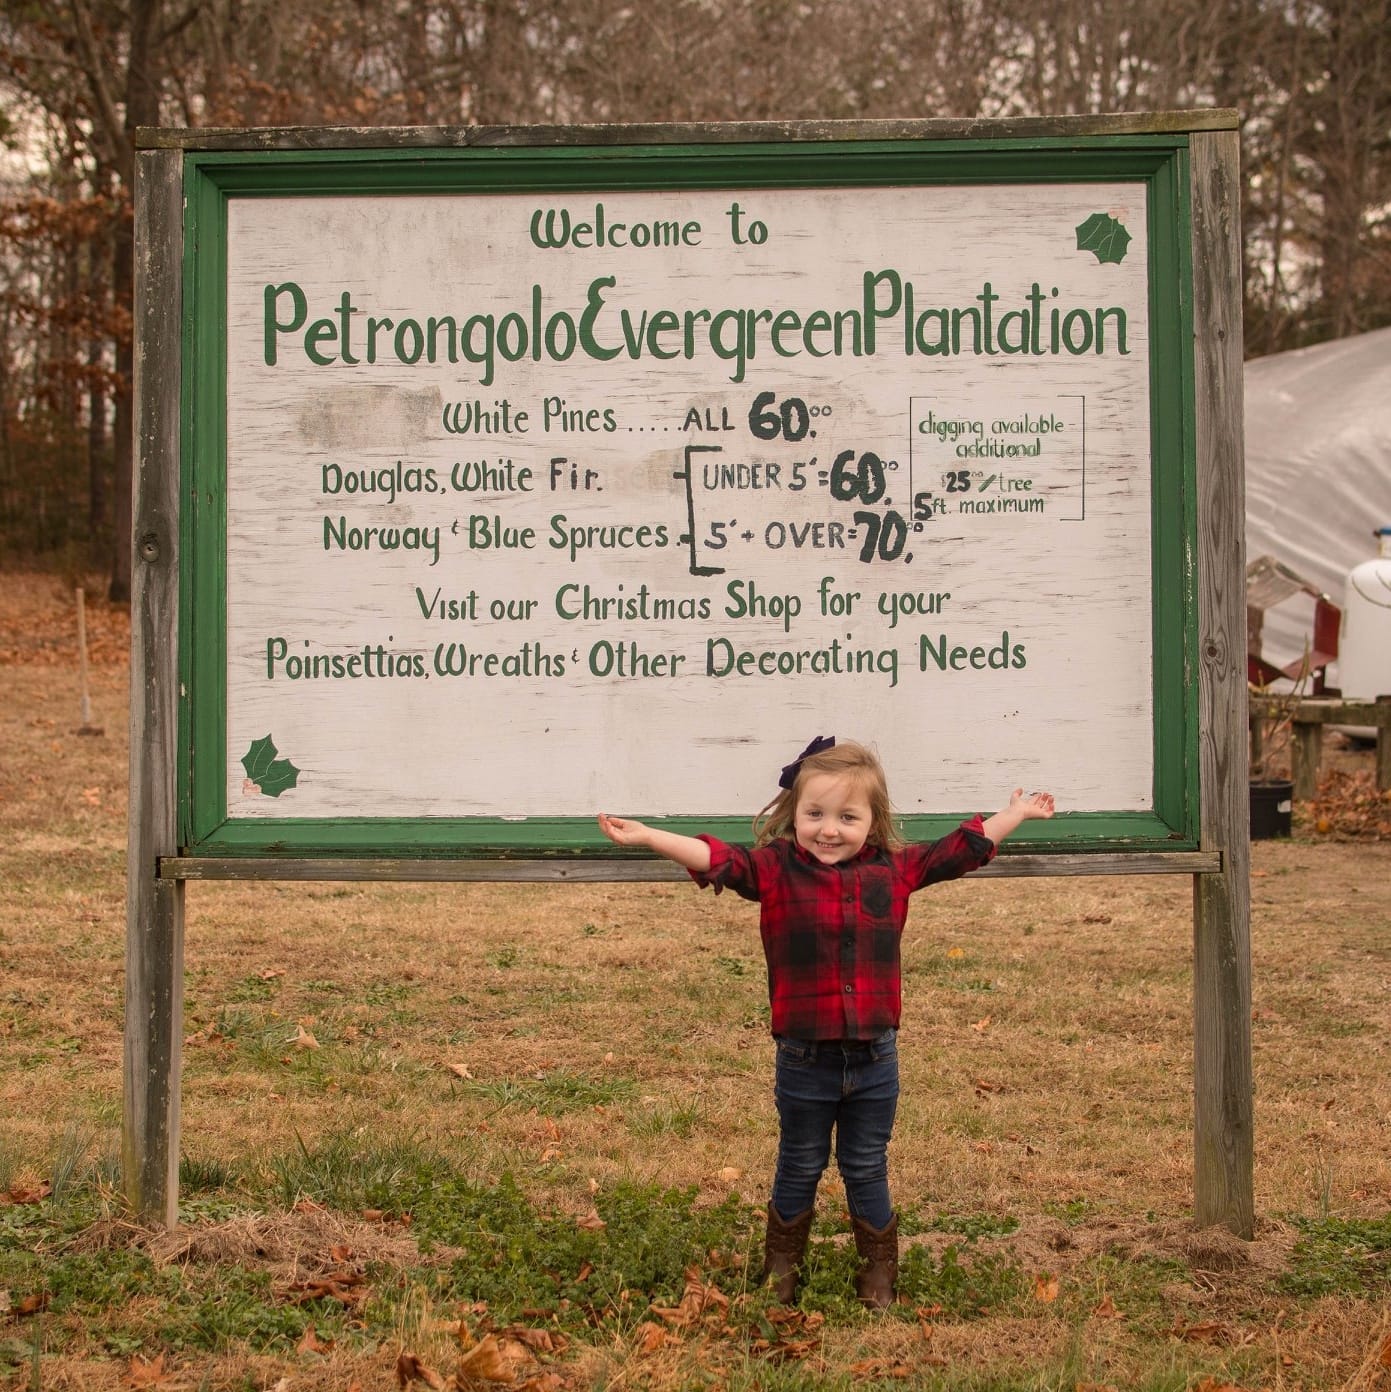 Welcome to
Petrongolo Evergreen Plantation
White Pines.....ALL 60.00
Douglas, White Fir. UNDER 5'=60.00
Norway & Blue Spruces. 5' + OVER=70.00
digging available -
additional
$25.00/tree
5ft. maximum
Visit our Christmas Shop for your
Poinsettias, Wreaths & Other Decorating Needs